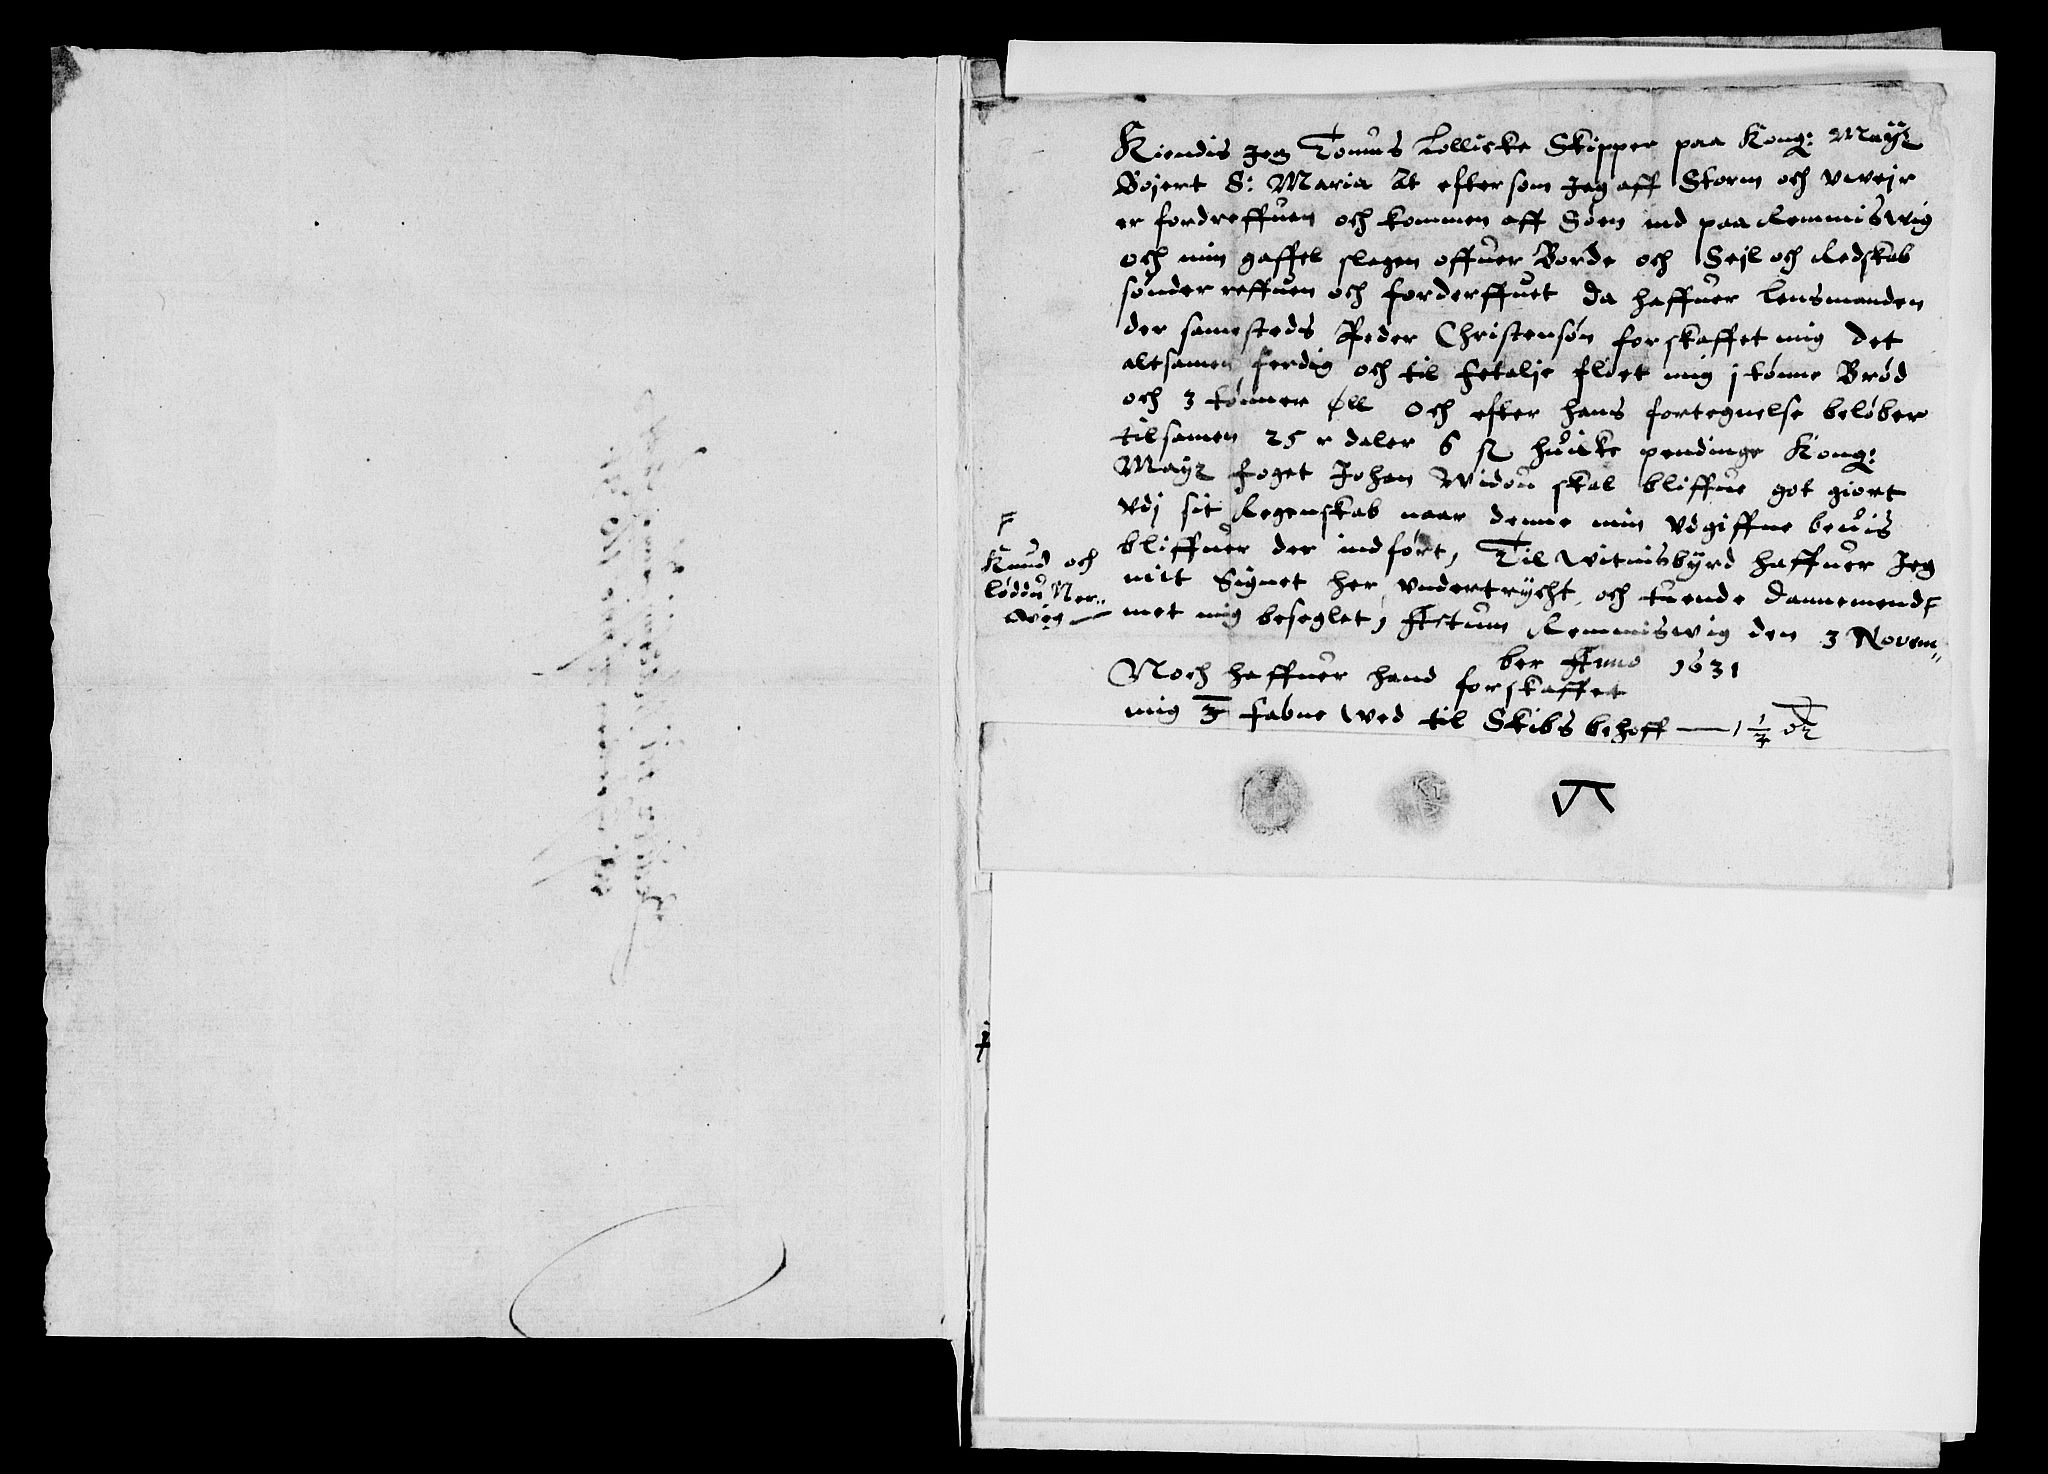 Kiendis Jeg Tonnis Lollicke Skipper paa Kong: Mayt
Bojert S: Maria At efftersom Jeg aff Storm och vveir
er fordreffuen och kommen aff Søen ind paa Remmisvig
och min gaffel slagen offuer Borde och Sejl och Redskab
sønder reffuen och forderffuet da haffuer Lensmanden
der samesteds Peder Christensøn forskaffet mig det
altsamen ferdig och til fetalje fløet mig j tønne Brød
och 3 tønner øll Och efter hans fortegnelse beløber
tilsamen 25 r daler 6 ß huilke pendinge Kong:
Mayt foget Johan Widou skal bliffue got giort
vdj sit Regenskab naar denne min vdgiffne beuis
bliffuer der indført, Til Witnisbyrd haffuer Jeg
mit Signet her vndertrycht och tuende Dannemend
met mig beseglet, Actum Remmisvig den 3 Novem„
ber Anno 1631
F
Knud och
løddu Ner„
wig
Noch haffuer hand forskaffet
mig 3 fabne Wed til Skibs behoff — 1 1/4 dr